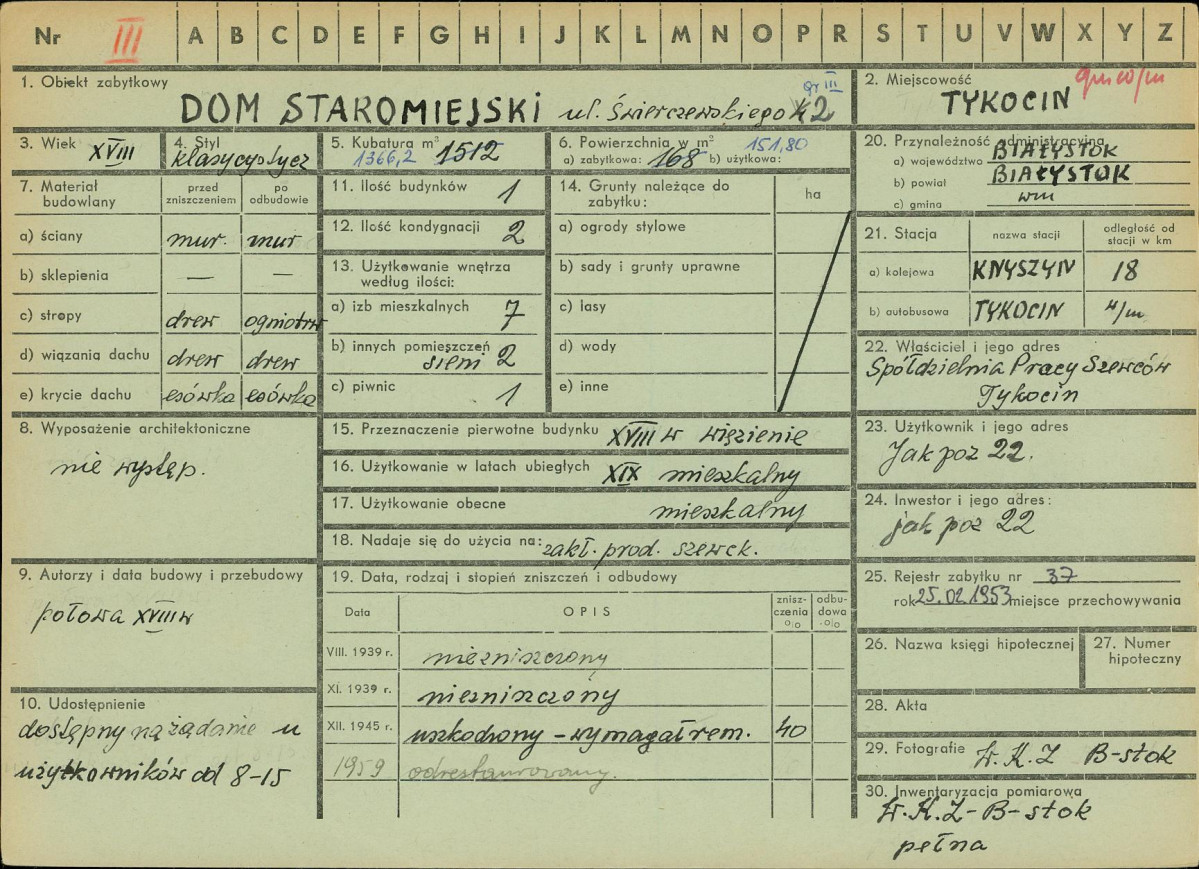 Nr III A B C D E F G H I J K L M N O P R S T U V W X Y Z
1. Obiekt zabytkowy
DOM STAROMIEJSKI ul. Świerczewskiego 2
gr III
2. Miejscowość
TYKOCIN
3. Wiek XVIII
4. Styl
klasycystycz
5. Kubatura m³
1366,2 1512
6. Powierzchnia w m² 151,80
a) zabytkowa: 168 b) użytkowa:
20. Przynależność administracyjna
a) województwo BIAŁYSTOK
b) powiat BIAŁYSTOK
c) gmina wm
7. Materiał budowlany
przed zniszczeniem
po odbudowie
a) ściany mur. mur
b) sklepienia — —
c) stropy drew ogniotrw
d) wiązania dachu drew drew
e) krycie dachu esówka esówka
11. Ilość budynków 1
12. Ilość kondygnacji 2
13. Użytkowanie wnętrza
według ilości:
a) izb mieszkalnych 7
b) innych pomieszczeń
sieni 2
c) piwnic 1
14. Grunty należące do
zabytku:
ha
a) ogrody stylowe
b) sady i grunty uprawne
c) lasy
d) wody
e) inne
21. Stacja
nazwa stacji
odległość od
stacji w km
a) kolejowa KNYSZYN 18
b) autobusowa TYKOCIN
22. Właściciel i jego adres
Spółdzielnia Pracy Szewców
Tykocin
8. Wyposażenie architektoniczne
nie występ.
15. Przeznaczenie pierwotne budynku XVIII w więzienie
16. Użytkowanie w latach ubiegłych XIX mieszkalny
17. Użytkowanie obecne mieszkalny
18. Nadaje się do użycia na: zakł. prod. szewck.
23. Użytkownik i jego adres
Jak poz 22.
24. Inwestor i jego adres:
jak poz 22
9. Autorzy i data budowy i przebudowy
połowa XVIII w
19. Data, rodzaj i stopień zniszczeń i odbudowy
Data
OPIS
znisz-
czenia
%
odbu-
dowa
%
VIII. 1939 r. niezniszczony
XI. 1939 r. niezniszczony
XII. 1945 r. uszkodzony – wymagał rem. 40
1959 odrestaurowany.
25. Rejestr zabytku nr 37
rok 25.02.1953 miejsce przechowywania
26. Nazwa księgi hipotecznej
27. Numer
hipoteczny
10. Udostępnienie
dostępny na żądanie u
użytkowników od 8–15
28. Akta
29. Fotografie W.K.Z B-stok
30. Inwentaryzacja pomiarowa
W.K.Z – B-stok
pełna